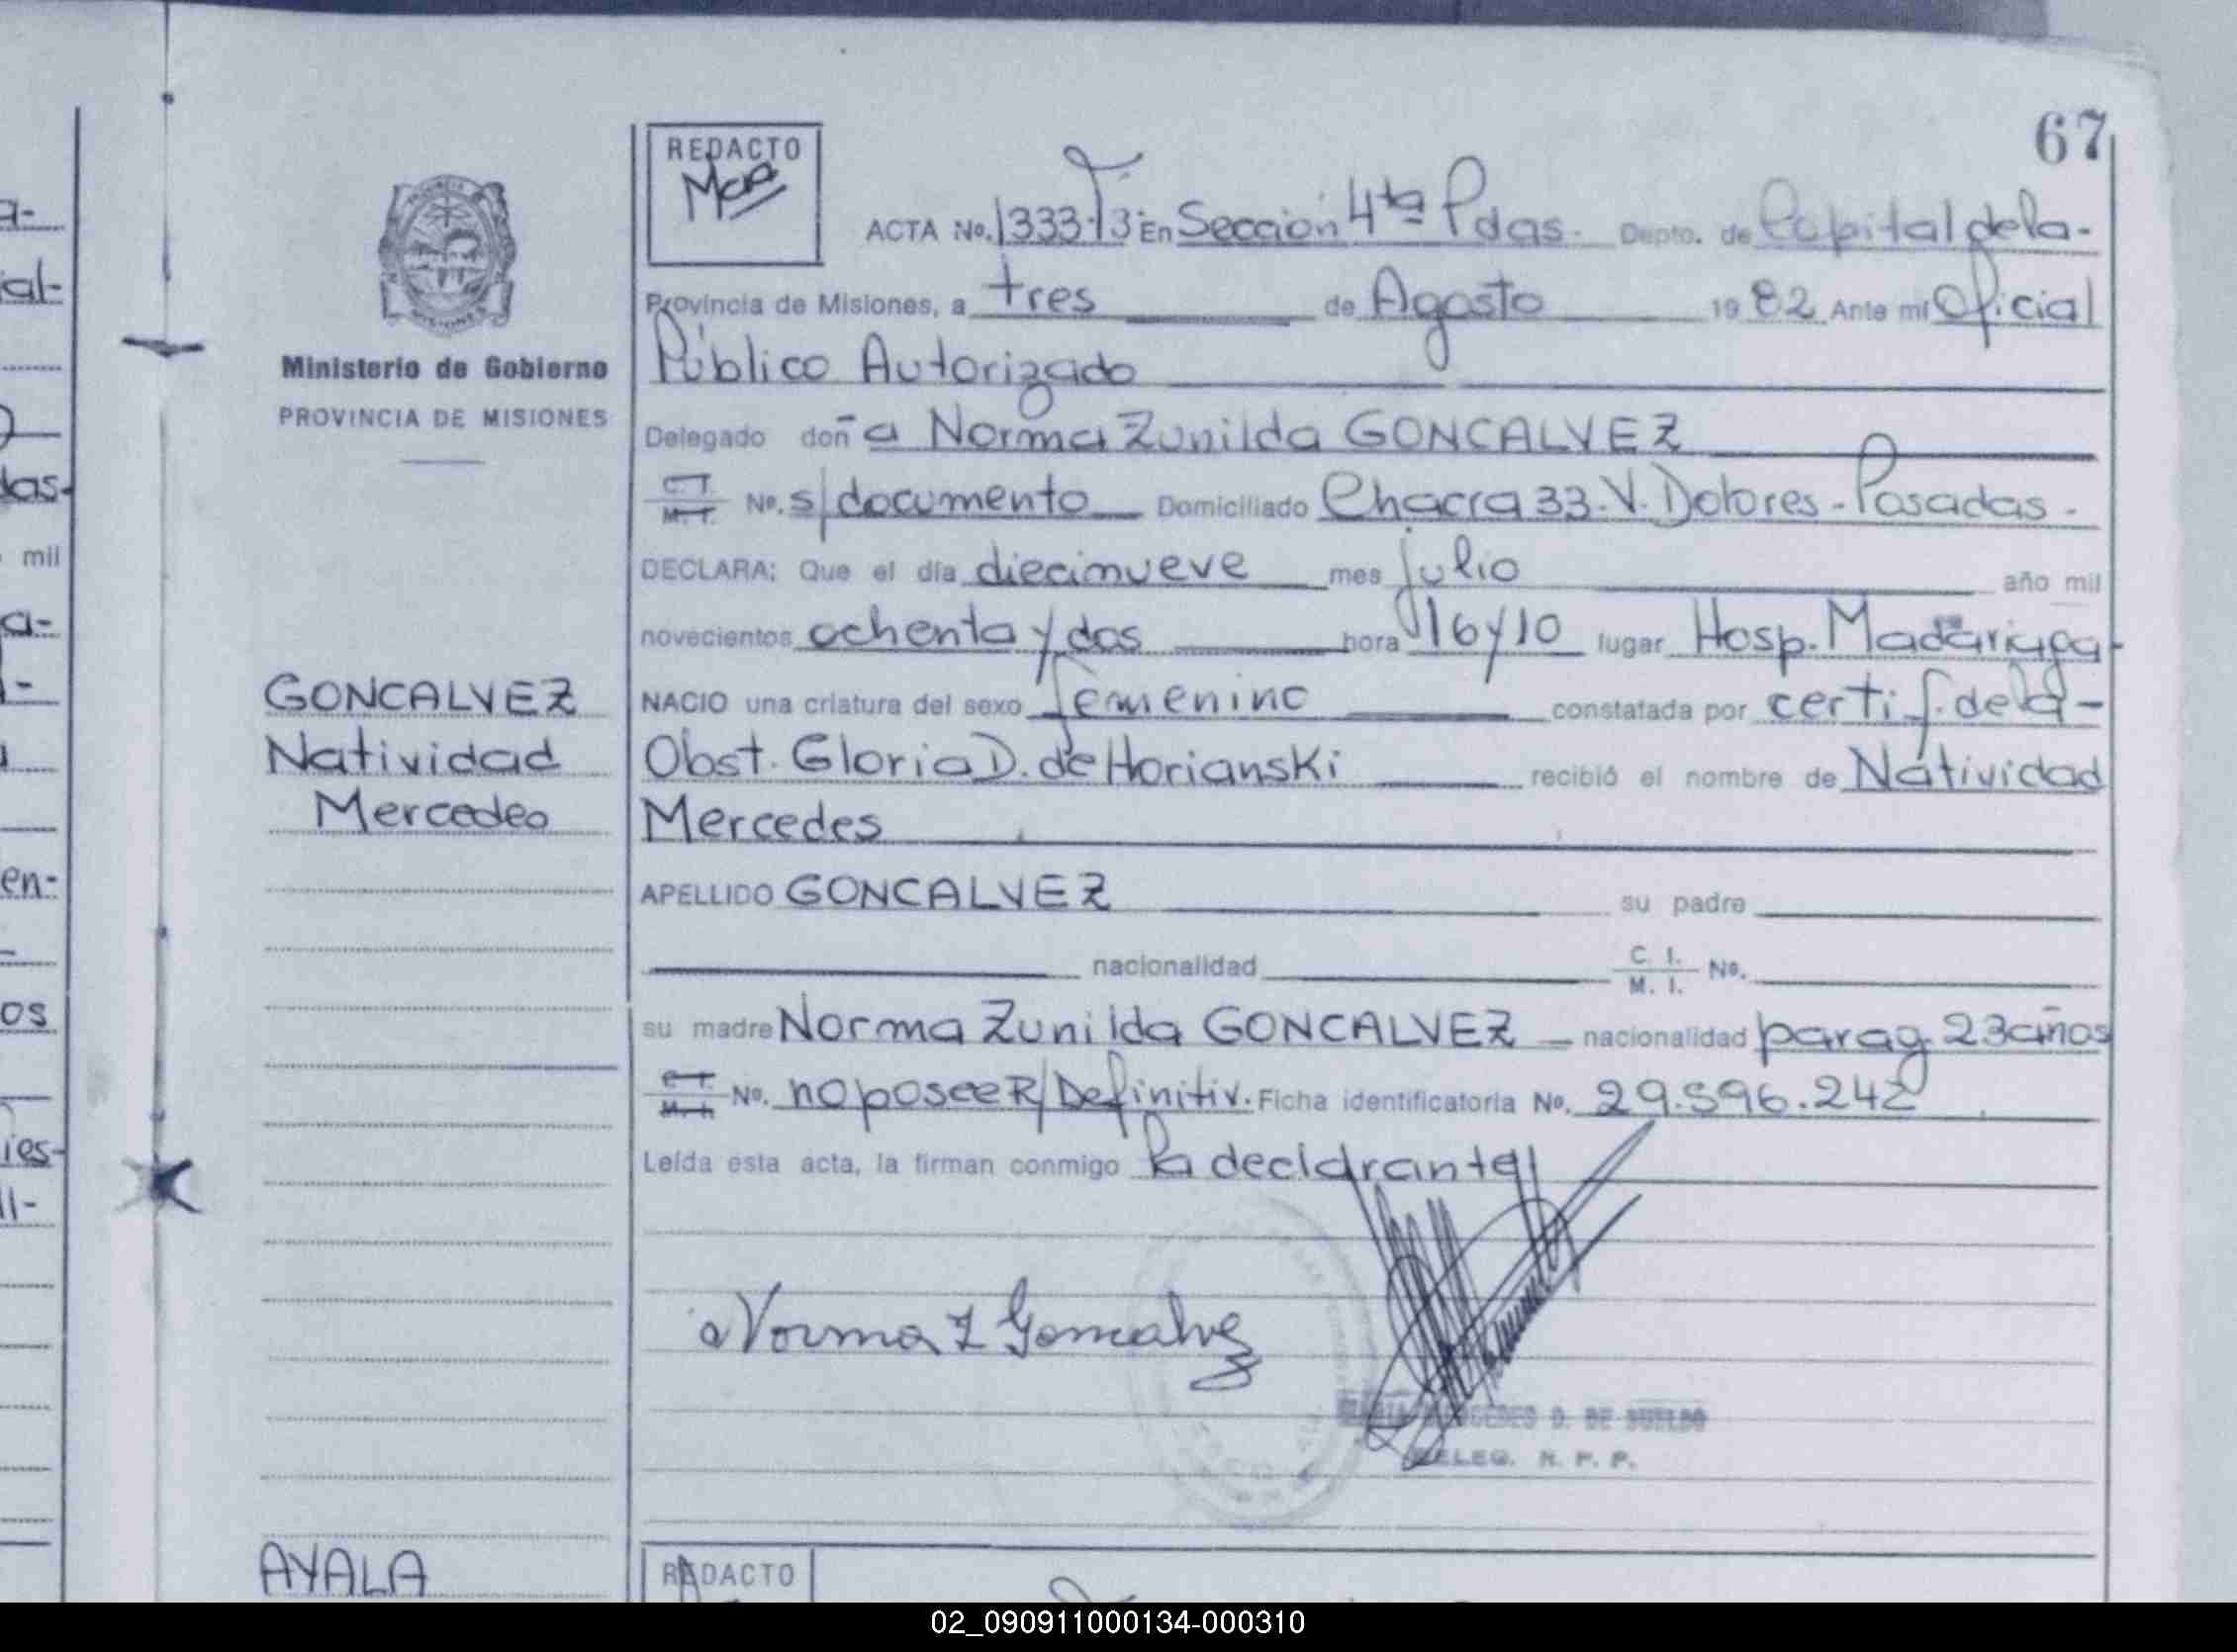 67
REDACTO
ACTA No. 1333 T 3 En Sección 4ta Pdas. Depto. de Capital de la-
Provincia de Misiones, a tres de Agosto 1982 Ante mí Oficial
Público Autorizado
Delegado doñ a Norma Zunilda GONCALVEZ
No. s/documento Domiciliado Chacra 33. V. Dolores - Posadas.
DECLARA: Que el día diecinueve mes julio año mil
novecientos ochenta y dos hora 16 y 10 lugar Hosp. Madariaga-
NACIO una criatura del sexo femenino constatada por certif. de la-
Obst. Gloria D. de Horianski recibió el nombre de Natividad
Mercedes
APELLIDO GONCALVEZ su padre
nacionalidad C. I. M. I. No.
su madre Norma Zunilda GONCALVEZ nacionalidad parag. 23 años
No. no posee R/Definitiv. Ficha identificatoria No. 29.596.242
Leída esta acta, la firman conmigo la declarante
Norma Z Goncalvez
D. DE SUELDO
DELEG. R. P. P.
Ministerio de Gobierno
PROVINCIA DE MISIONES
GONCALVEZ
Natividad
Mercedes
AYALA
REDACTO
a-
al-
das-
mil
a-
en-
os
ies-
02_090911000134-000310